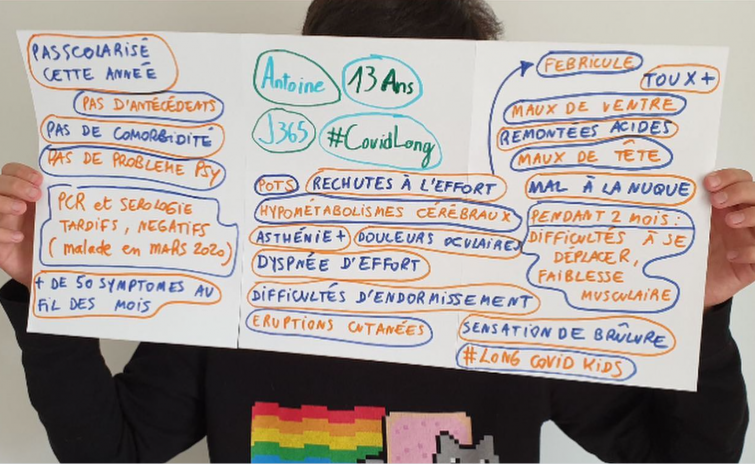 PASSCOLARISÉ
CETTE ANNÉE
PAS D'ANTÉCÉDENTS
PAS DE COMORBIDITÉ
PAS DE PROBLEME PSY
PCR et SEROLOGIE
TARDIFS, NEGATIFS
(malade en MARS 2020)
+ DE 50 SYMPTOMES AU
FIL DES MOIS
Antoine
13 Ans
J365
#CovidLong
POTS
RECHUTES À L'EFFORT
HYPOMÉTABOLISMES CÉRÉBRAUX
ASTHÉNIE+
DOULEURS OCULAIRES
DYSPNÉE D'EFFORT
DIFFICULTÉS D'ENDORMISSEMENT
ERUPTIONS CUTANÉES
FEBRICULE
TOUX+
MAUX DE VENTRE
REMONTÉES ACIDES
MAUX DE TÊTE
MAL À LA NUQUE
PENDANT 2 MOIS :
DIFFICULTÉS À SE
DÉPLACER,
FAIBLESSE
MUSCULAIRE
SENSATION DE BRÛLURE
#LONG COVID KIDS